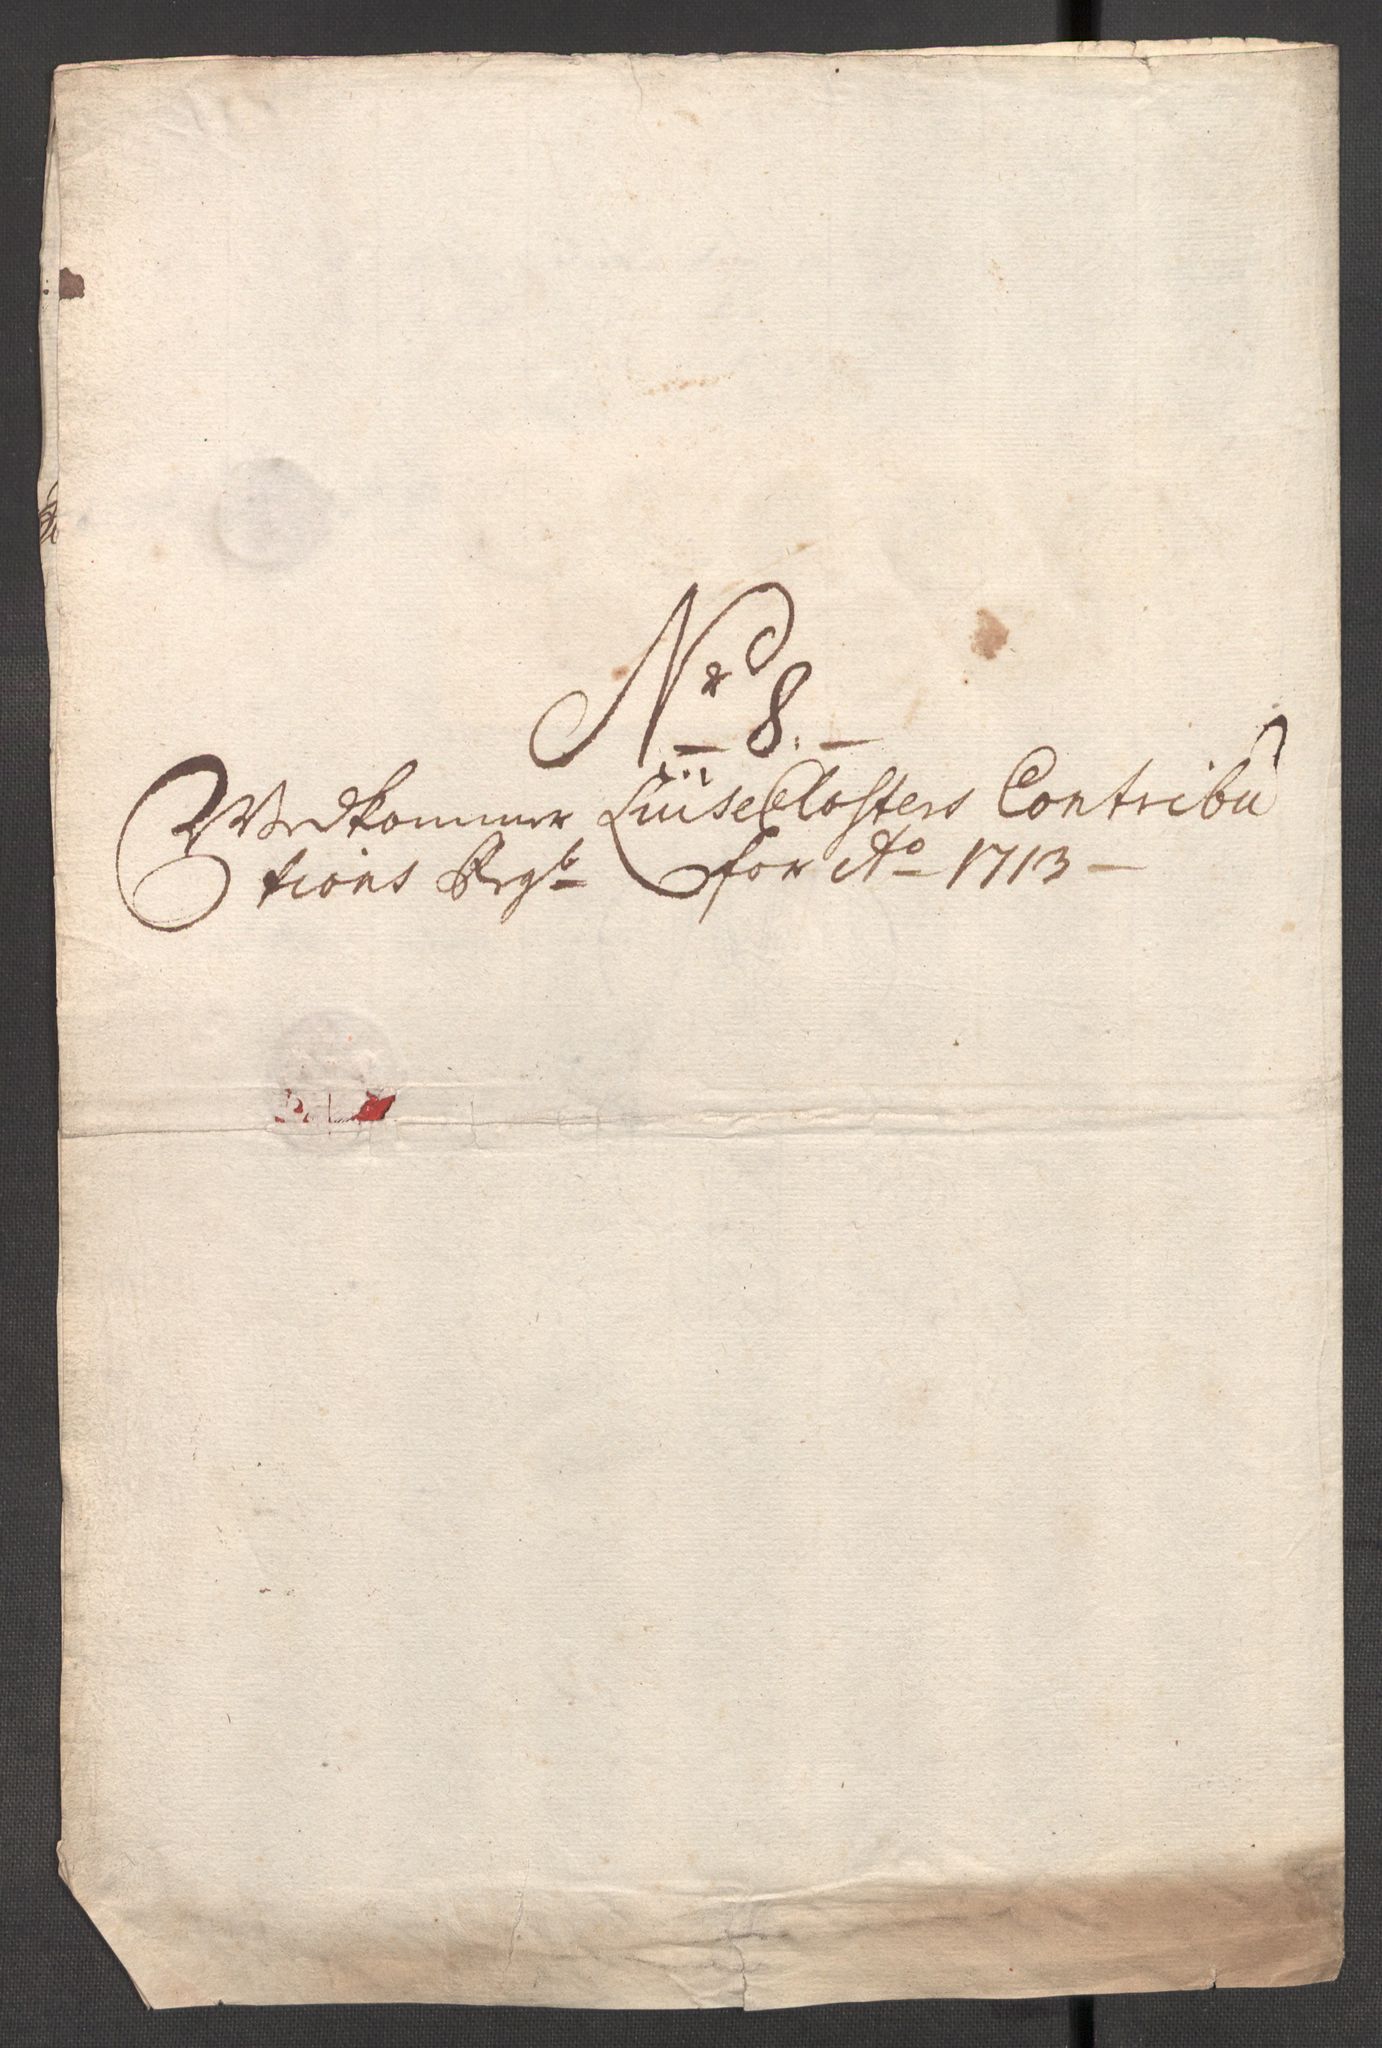 No 8.
Vedkommer Lüse Closters Contribu
tions Regb for Ao 1713